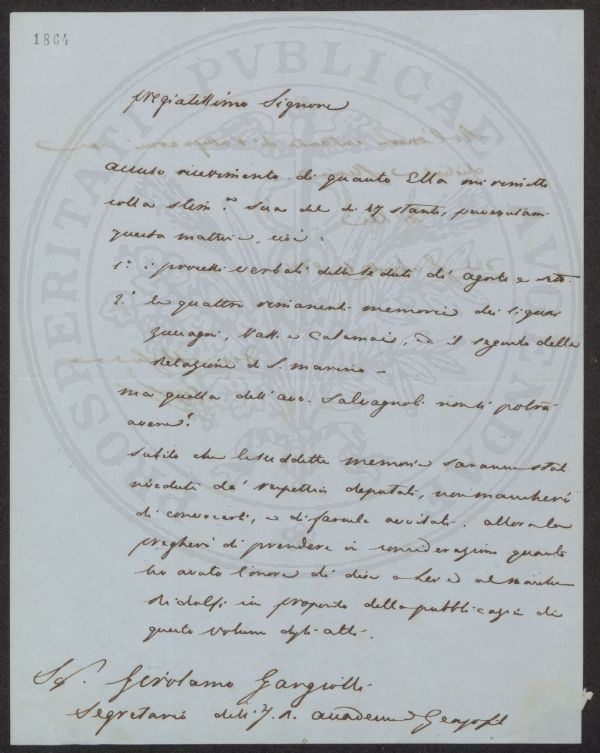 1864
PROSPERITATI PUBLICAE AUGENDAE
Pregiatissimo Signore
accuso ricevimento di quanto Ella mi rimette
colla stim.ª Sua del dì 17 stante,
questa mattina, cioè:
1.º i processi verbali delle sedute di agosto e
2.º le quattro rimanenti memorie dei Signori
Zuccagni, e Calamai, ed il seguito della
Relazione di S. Marino –
ma quella dell'avv. Salvagnoli non si potrà
avere?
Subito che le suddette memorie saranno state
rivedute da' rispettivi deputati, non mancherò
di convocarli, e di farvela avvisati. allora la
pregherò di prendere in considerazione quanto
ho avuto l'onore di dire a Lei e al March.
Ridolfi in proposito della pubblicazione di
questo volume degli atti.
Sig. Girolamo Gargiolli
Segretario dell'I. R. Accademia Georgofili